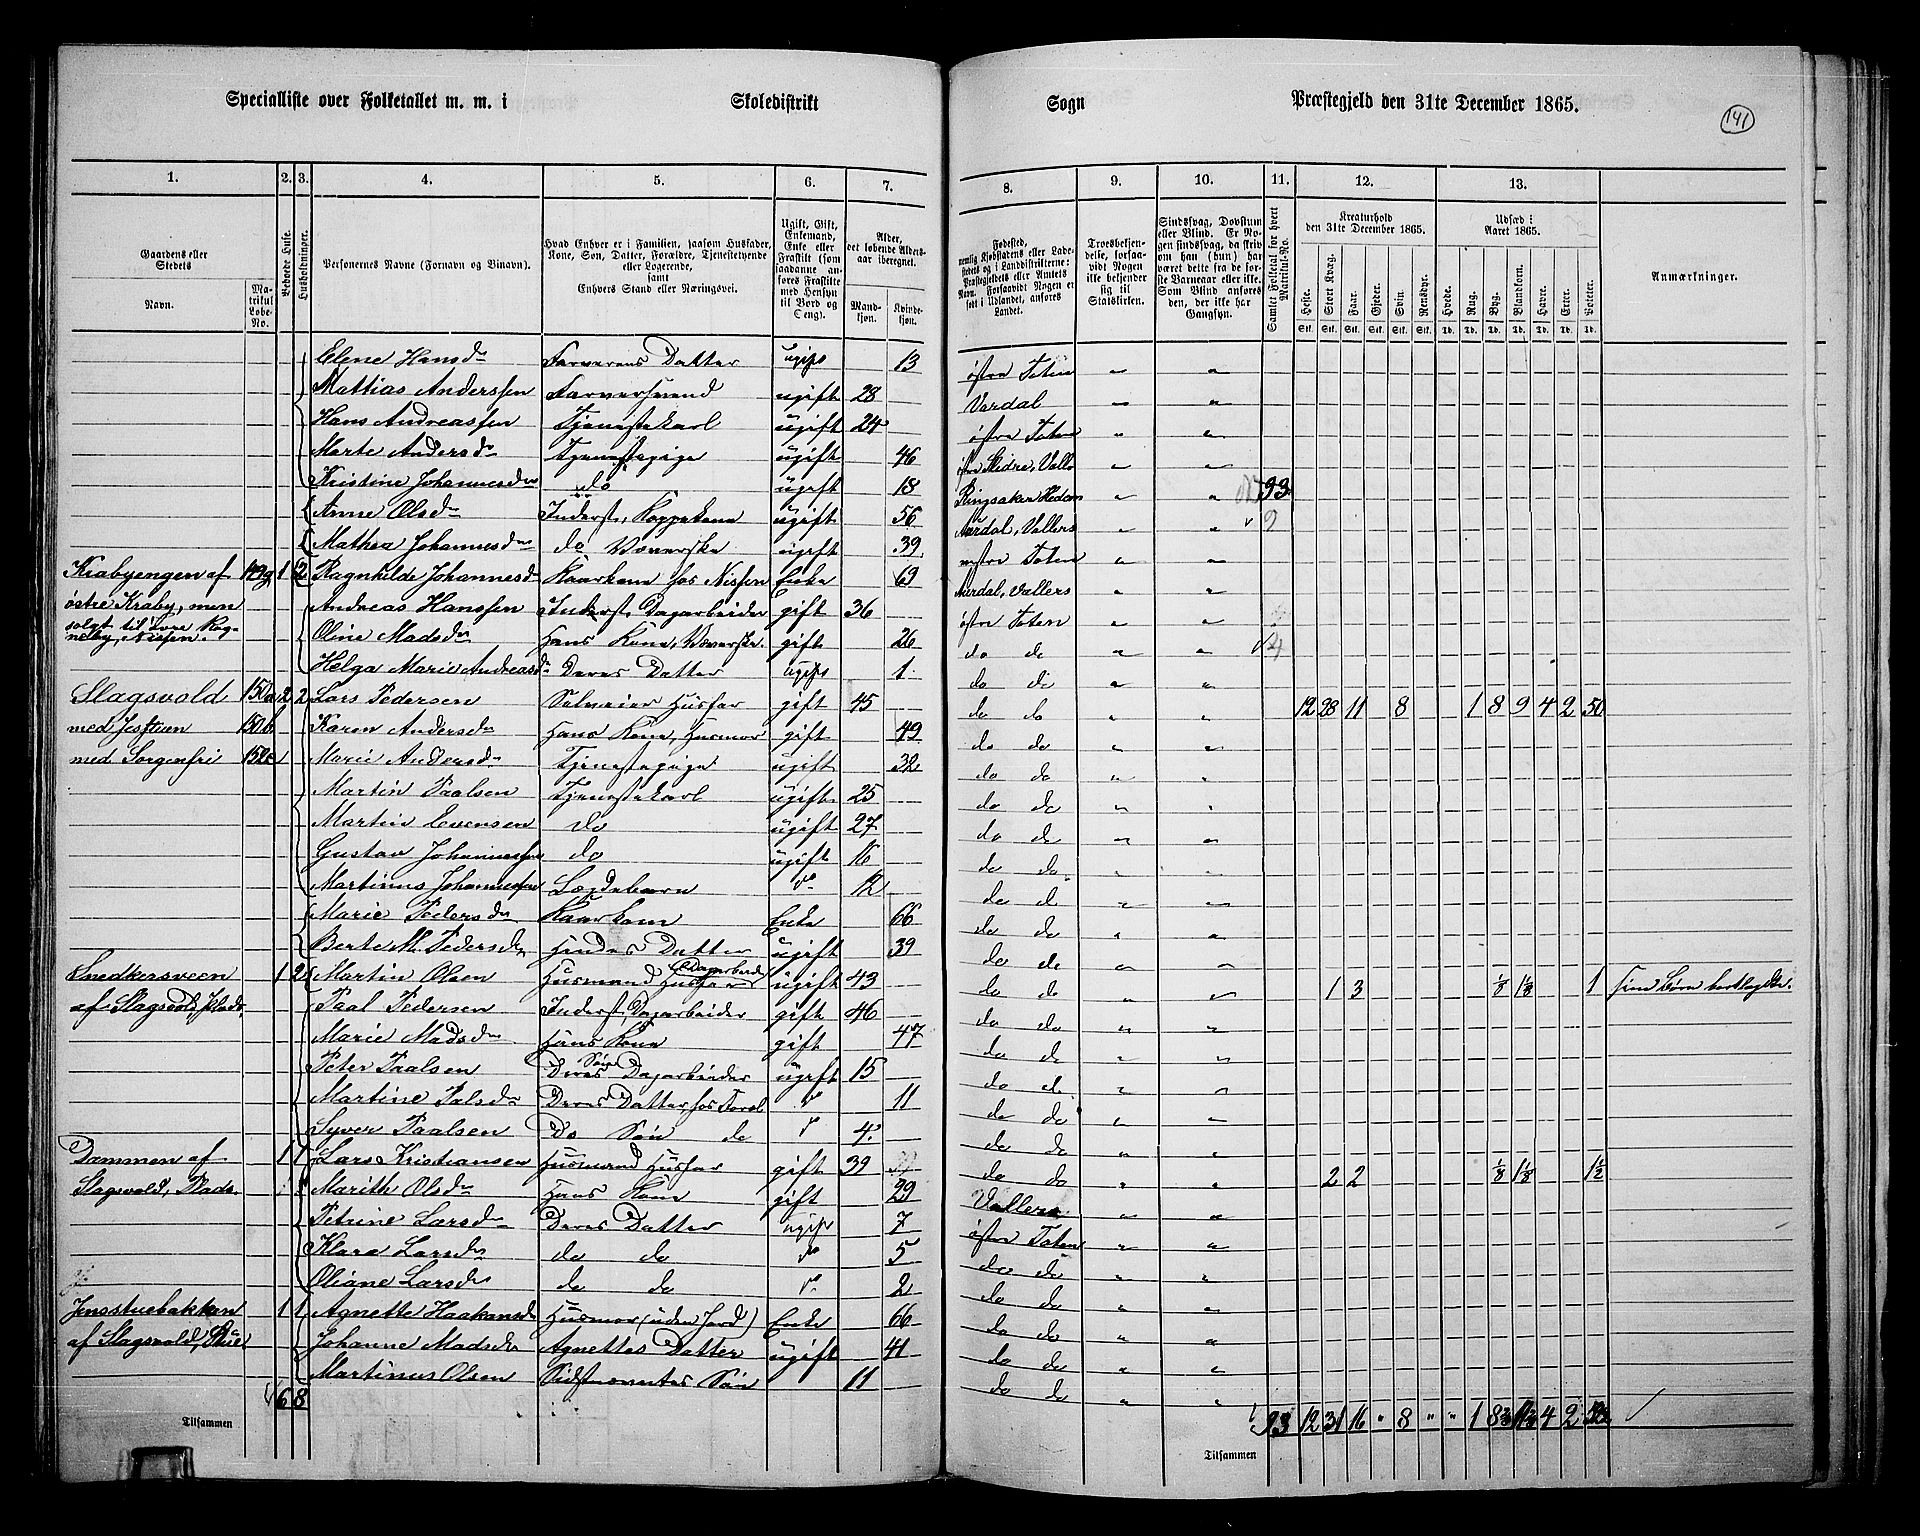 Specialliste over Folketallet m. m. i Skoledistrikt Sogn Præstegjeld den 31te December 1865.
141
1. 2. 3. 4. 5. 6. 7. 8. 9. 10. 11. 12. 13.
Gaardens eller Stedets
Navn. Matrikul Løbe-No.
Bebodde Huse.
Husholdninger.
Personernes Navne (Fornavn og Tilnavn).
Hvad Enhver er i Familien, saasom Husfader, Kone, Søn, Datter, Forældre, Tjenestetyende eller Logerende, samt Enhvers Stand eller Næringsvei.
Ugift, Gift, Enkemand, Enke eller Fraskilt (som saadanne anføres Fraskilte med Hensyn til Bord og Seng).
Alder, det løbende Aldersaar iberegnet.
Mandkjøn. Kvindekjøn.
Fødested, nemlig Kjøbstadens eller Ladestedets og i Landdistrikterne: Præstegjeldets eller Amtets Navn. Forsaavidt Nogen er født i Udlandet, anføres Landet.
Troesbekjendelse, forsaavidt Nogen ikke bekjender sig til Statskirken.
Sindssvag, Døvstum eller Blind. Er Nogen sindssvag, da skriv om han (hun) har været dette fra de første Barneaar eller ikke. Som Blind anføres den, der ikke har Gangsyn.
Samlet Folketal for hvert Matrikul-No.
Kreaturhold den 31te December 1865.
Heste. Stort Kvæg. Faar. Gjeder. Svin. Rensdyr.
Udsæd i Aaret 1865.
Hvede. Rug. Byg. Blandkorn. Havre. Erter. Poteter.
Stk. Stk. Stk. Stk. Stk. Stk. Td. Td. Td. Td. Td. Td. Td.
Anmærkninger.
Elene Hansd Farverens Datter ugift 13 østre Toten
Mattias Anderssen Farversvend ugift 28 Vardal
Hans Andreassen Tjenestekarl ugift 24 østre Toten
Marte Andersd Tjenestepige ugift 46
Kristine Johannesd do ugift 18 Ringsaker 93
Anne Olsd Inderst, Koppekone ugift 56
Mathea Johannesd do Væverske ugift 39 Toten
Krabyengen af 1 2 Ragnhilde Johannesd Kaarkone hos Nissen Enke 69
østre Kraby, men Andreas Hanssen Inderst, Dagarbeider gift 36 østre Toten
solgt til Oline Madsd Hans Kone, Væverske. gift 26 do do
Nissen. Helga Marie Andreasd Deres Datter ugift 1 do do
Slagsvold 150a 2 2 Lars Pedersen Selveier Husfar gift 45 do do 12 28 11 8 1 8 9 4 2 50
med 150b Karen Andersd Hans Kone, Husmor gift 49 do do
med Sorgenfri 152c Marie Andersd Tjenestepige ugift 32 do do
Martin Paalsen Tjenestekarl ugift 25 do do
Martin Evensen do ugift 27 do do
Gustav Johannessen do ugift 16 do do
Martinus Johannessen Lægdebarn do 12 do do
Marie Pedersd Kaarkone Enke 66 do do
Berte M. Pedersd Hendes Datter ugift 39 do do
Snedkersveen 1 2 Martin Olsen Husmand Husfar Dagarbeid ugift 43 do do 1 3 1/8 1 1/8 1
af Slagsvold, Plads. Paal Pedersen Inderst, Dagarbeider gift 46 do do
Marie Madsd Hans Kone gift 47 do do
Peter Paalsen Deres Søn Dagarbeider ugift 15 do do
Martine Palsd Deres Datter hos Foræl do 11 do do
Syver Paalsen Do Søn do do 4 do do
Dammen af 1 1 Lars Kristiansen Husmand Husfar gift 39 do do 2 2 1/8 1 1/8 1 1/2
Slagsvold, Plads. Marith Olsd Hans Kone gift 29 Vallers
Petrine Larsd Deres Datter ugift 7 østre Toten
Klara Larsd do do do 5 do do
Oliane Larsd do do do 2 do do
Jensstuebakken 1 1 Agnette Haakensd Husmor (uden Jord) Enke 66 do do
af Slagsvold, Johanne Madsd Agnettes Datter ugift 41 do do
Martinus Olsen Sidstnævntes Søn 11 do do
6 8
Tilsammen
93 12 31 16 " 8 " " 1 4 2
Tilsammen